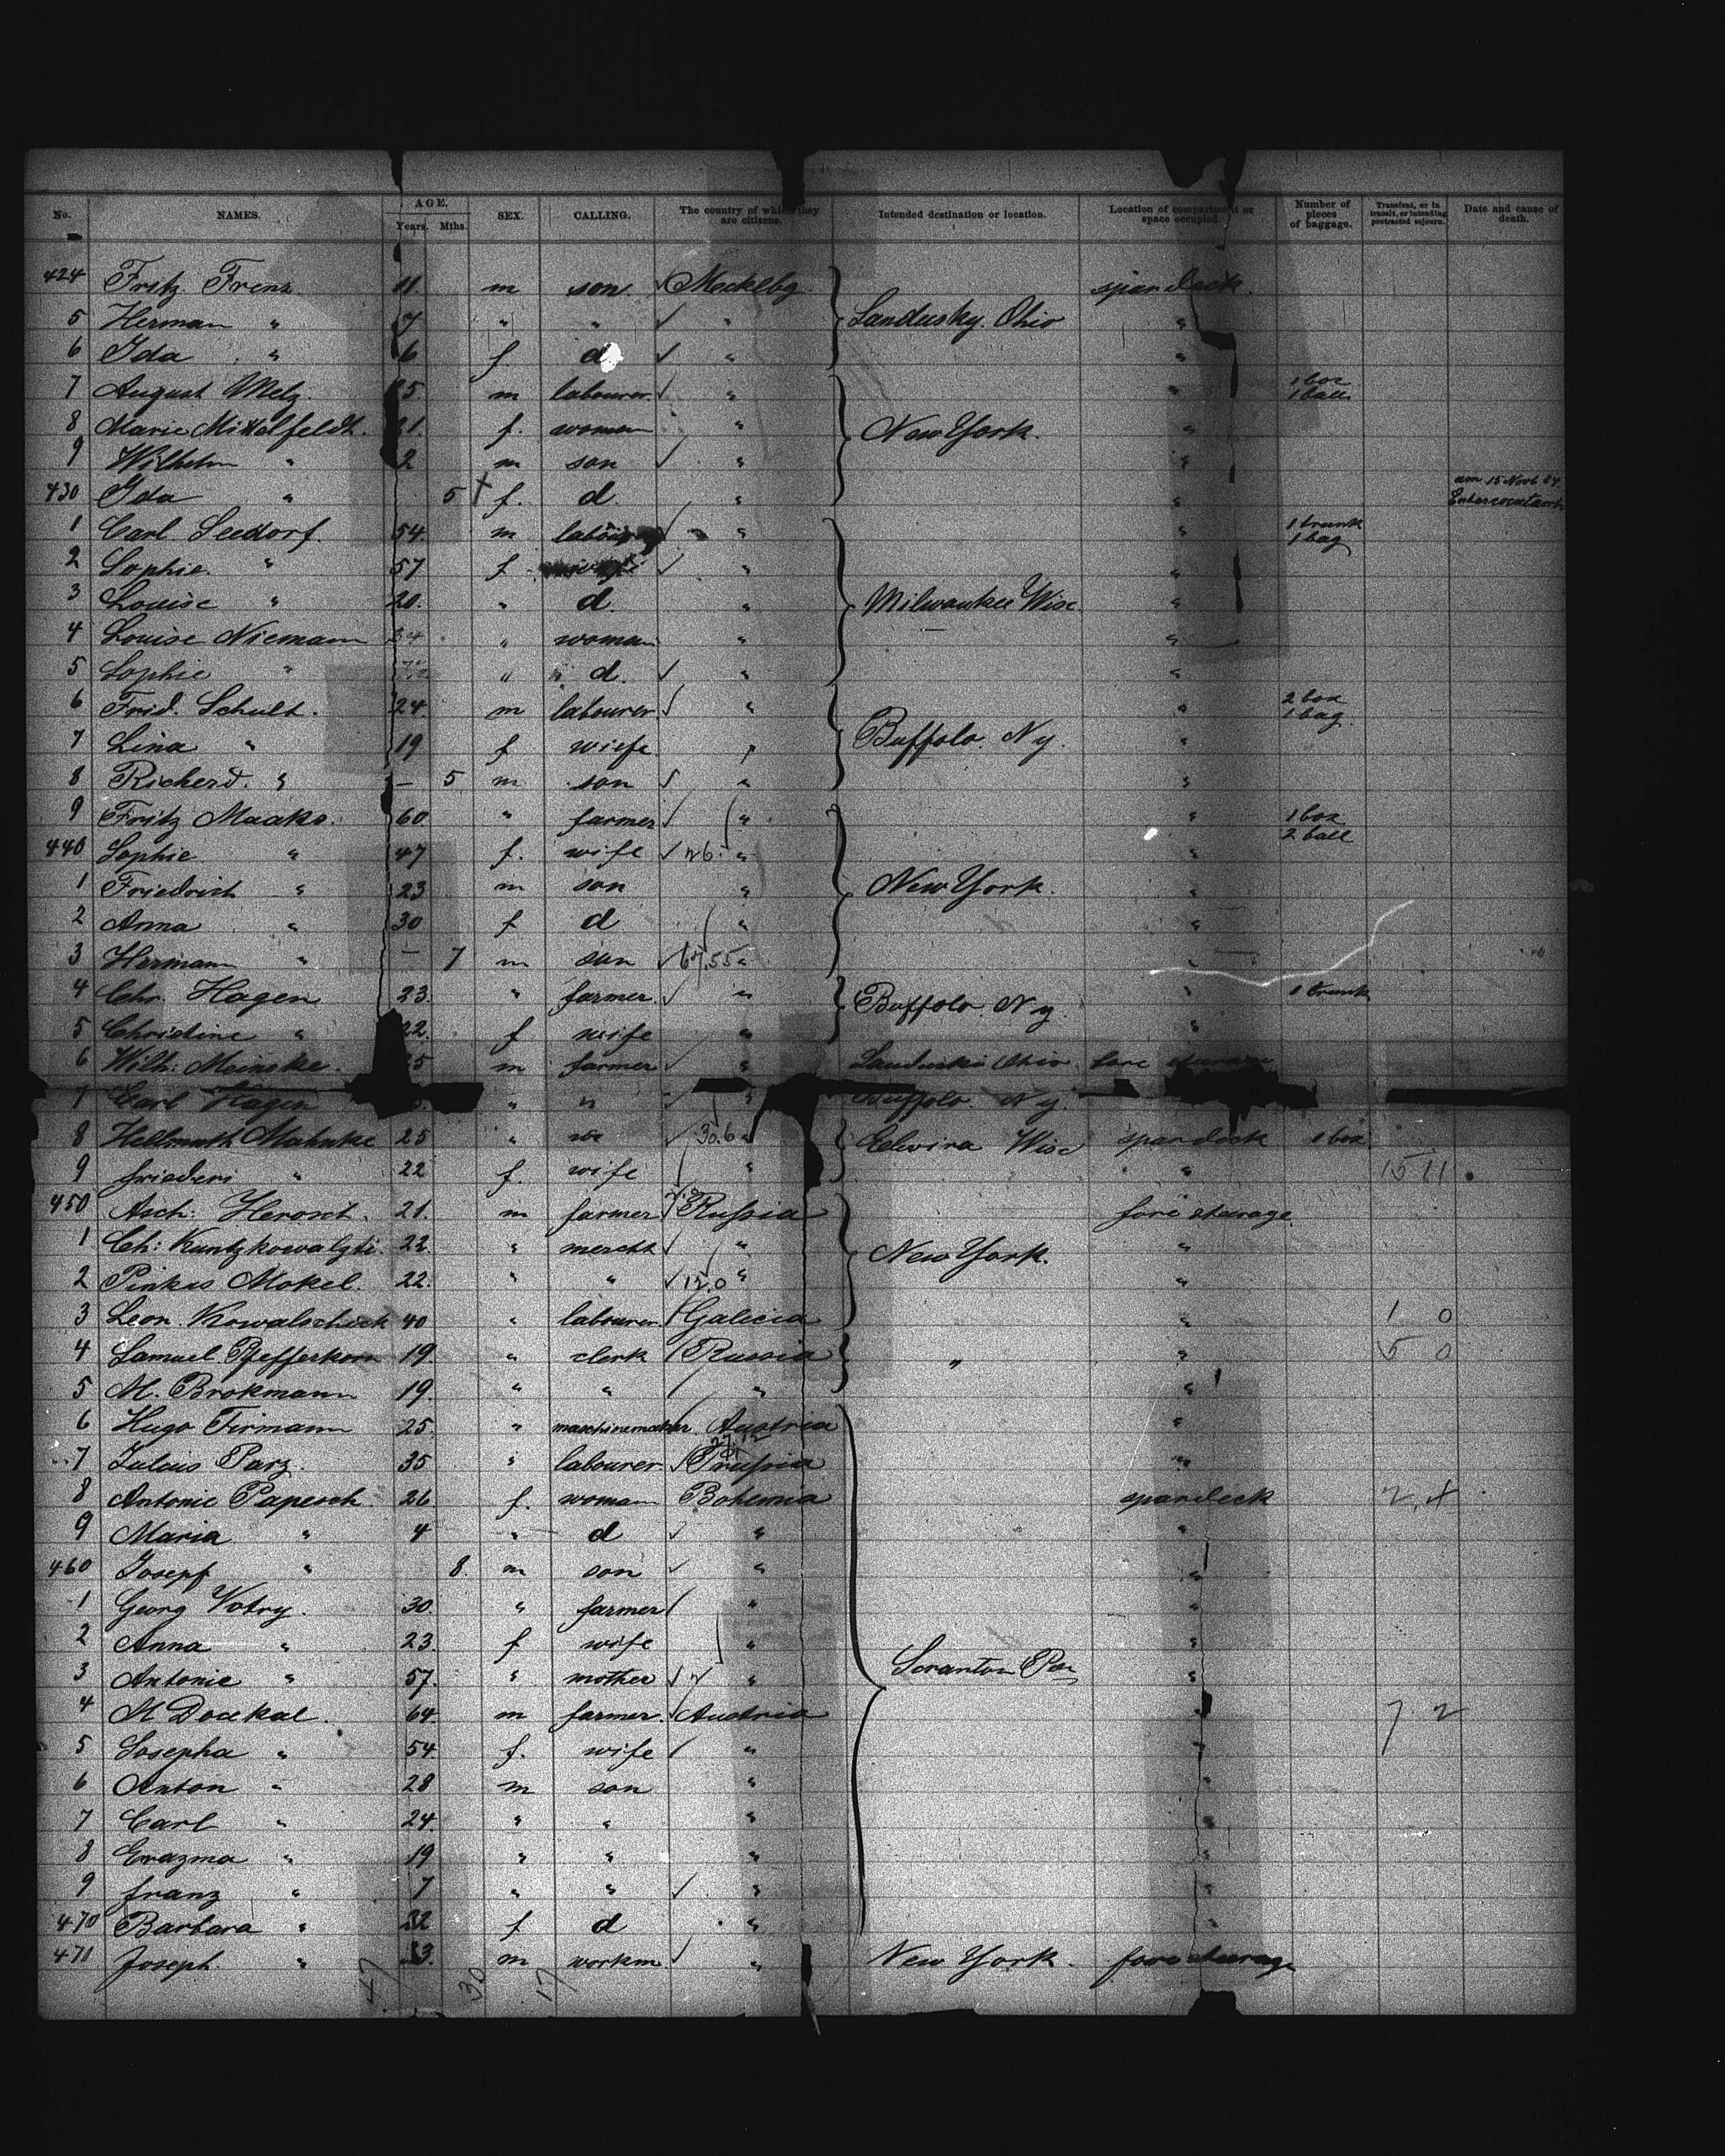 No. NAMES. AGE. Years. Mths. SEX. CALLING. The country of which they are citizens. Intended destination or location. Location of compartment or space occupied. Number of pieces of baggage. Transient, or in transit, or intending protracted sojourn. Date and cause of death.
424 Fritz Frenz 11. m son. Mecklbg spardeck.
5 Herman " 7 " " " Sandusky. Ohio "
6 Ida " 6 f. d " "
7 August Welz. 25 m labourer. " " 1 box 1 ball
8 Marie Mittelfeldt. 31. f. woman " New York. "
9 Wilhelm " 2 m son " "
430 Ida " 5 f. d. " " am 15 Novb 84
1 Carl Seedorf. 54. m " " 1 trunk 1 bag
2 Sophie. " 57 f wife " "
3 Louise " 20. " d. " Milwaukee Wisc. "
4 Louise Niemann 34 " woman " "
5 Sophie " " d. " "
6 Frid. Schult. 24. m labourer. " " 2 box 1 bag
7 Lina " 19 f wiefe " Buffolo. Ny. "
8 Richerd. " – 5 m son " "
9 Fritz Maako. 60 " farmer " " 1 box 2 ball
440 Sophie " 47 f. wife 26. " "
1 Friedrich " 23 m son " New York. "
2 Anna " 30 f d " "
3 Hermann " – 7 m son 67.55 " "
4 Chr. Hagen 23. " farmer. " Buffolo. Ny. " 1 trunk
5 Christine " 22. f wife " "
6 Wilh: Meincke. 25 m farmer " Sanduski Ohio. fore
7 Carl Hagen " " " Buffolo. Ny.
8 Hellmuth Mahnke 25 " " 30.6 " Wisc spardeck 1 box
9 friederi " 22 f. wife " " 15 11
450 Asch: Herosch. 21. m farmer Russia fore stearage.
1 Ch: Kuntzkowalzki. 22. " mercht " New York. "
2 Pinkus Mokel. 22. " " 12.0 " "
3 Leon. Kowalschick 40 " labourer. Galicia " 1 0
4 Samuel Pfefferkorn 19. " clerk Russia " " 5 0
5 M. Brokmann 19. " " " "
6 Hugo Firmann 25. " maschinemaker Austria "
7 Julius Parz. 35 " labourer. Prussia "
8 Antonie Papesch. 26 f. woman Bohemia spardeck 2.4
9 Maria " 4 " d " "
460 Josepf " 8. m son " "
1 Georg Votry. 30. " farmer " "
2 Anna " 23. f wife " "
3 Antonie " 57. " mother " Scranton Pa "
4 M Docekal. 64. m farmer. Austria " 7 2
5 Josepha " 54. f. wife " "
6 Anton " 28 m son " "
7 Carl " 24. " " " "
8 Erazma " 19 " " " "
9 franz " 7 " " " "
470 Barbara " 32 f d " "
471 Joseph. " 33. m workm " New York. fore stearage
47 30 17